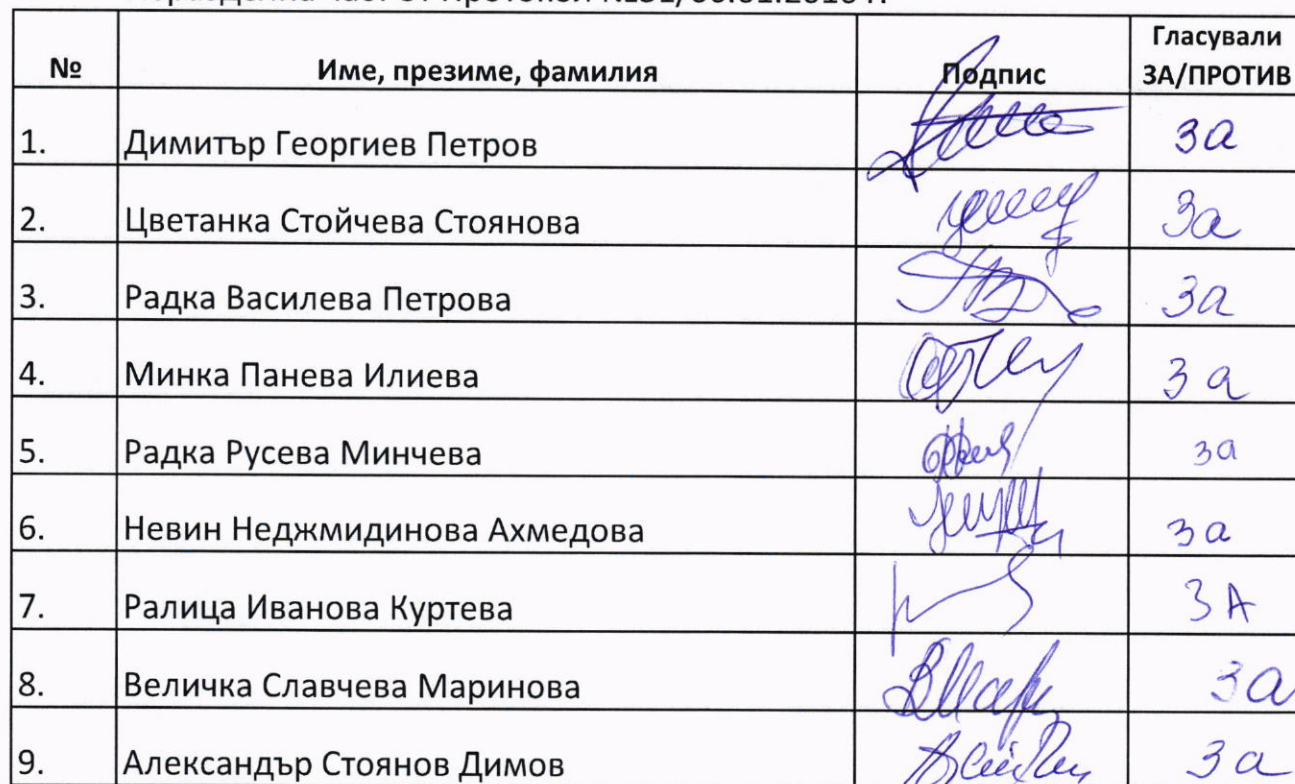 Неразделна част от Протокол №51/06.01.2016 г.
№ Име, презиме, фамилия Подпис Гласували ЗА/ПРОТИВ
1. Димитър Георгиев Петров За
2. Цветанка Стойчева Стоянова За
3. Радка Василева Петрова За
4. Минка Панева Илиева За
5. Радка Русева Минчева за
6. Невин Неджмидинова Ахмедова за
7. Ралица Иванова Куртева ЗА
8. Величка Славчева Маринова За
9. Александър Стоянов Димов За